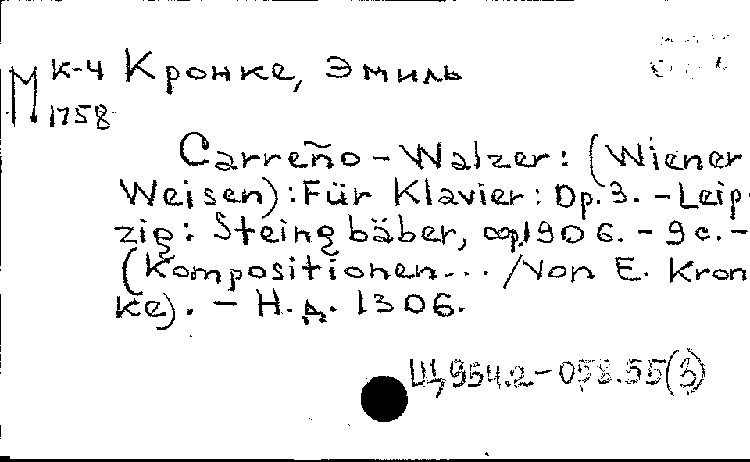 М К-4 Кронке, Эмиль
1758
Carreño-Walzer: (Wiener
Weisen): Für Klavier: Op. 3. - Leip-
zig: Steingbäber, cop. 1906. - 9 c. -
(Kompositionen... / Von E. Kron
ke). - Н. д. 1306.
Щ 954.2-058.55(3)